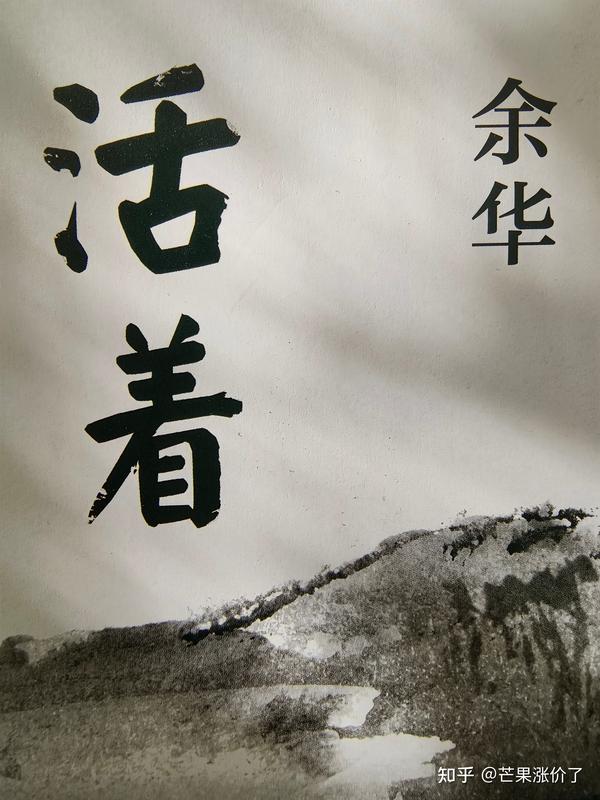 活着
余华
知乎 @芒果涨价了